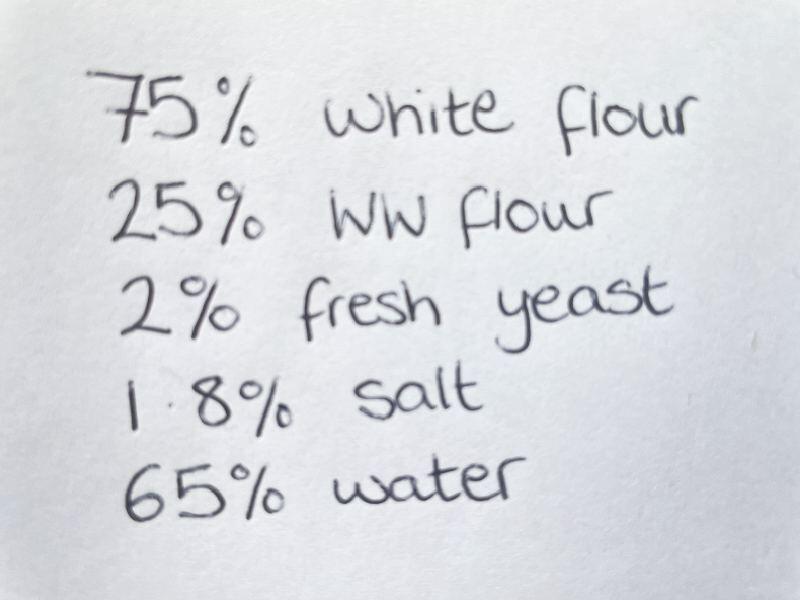 75% white flour
25% WW flour
2% fresh yeast
1.8% salt
65% water